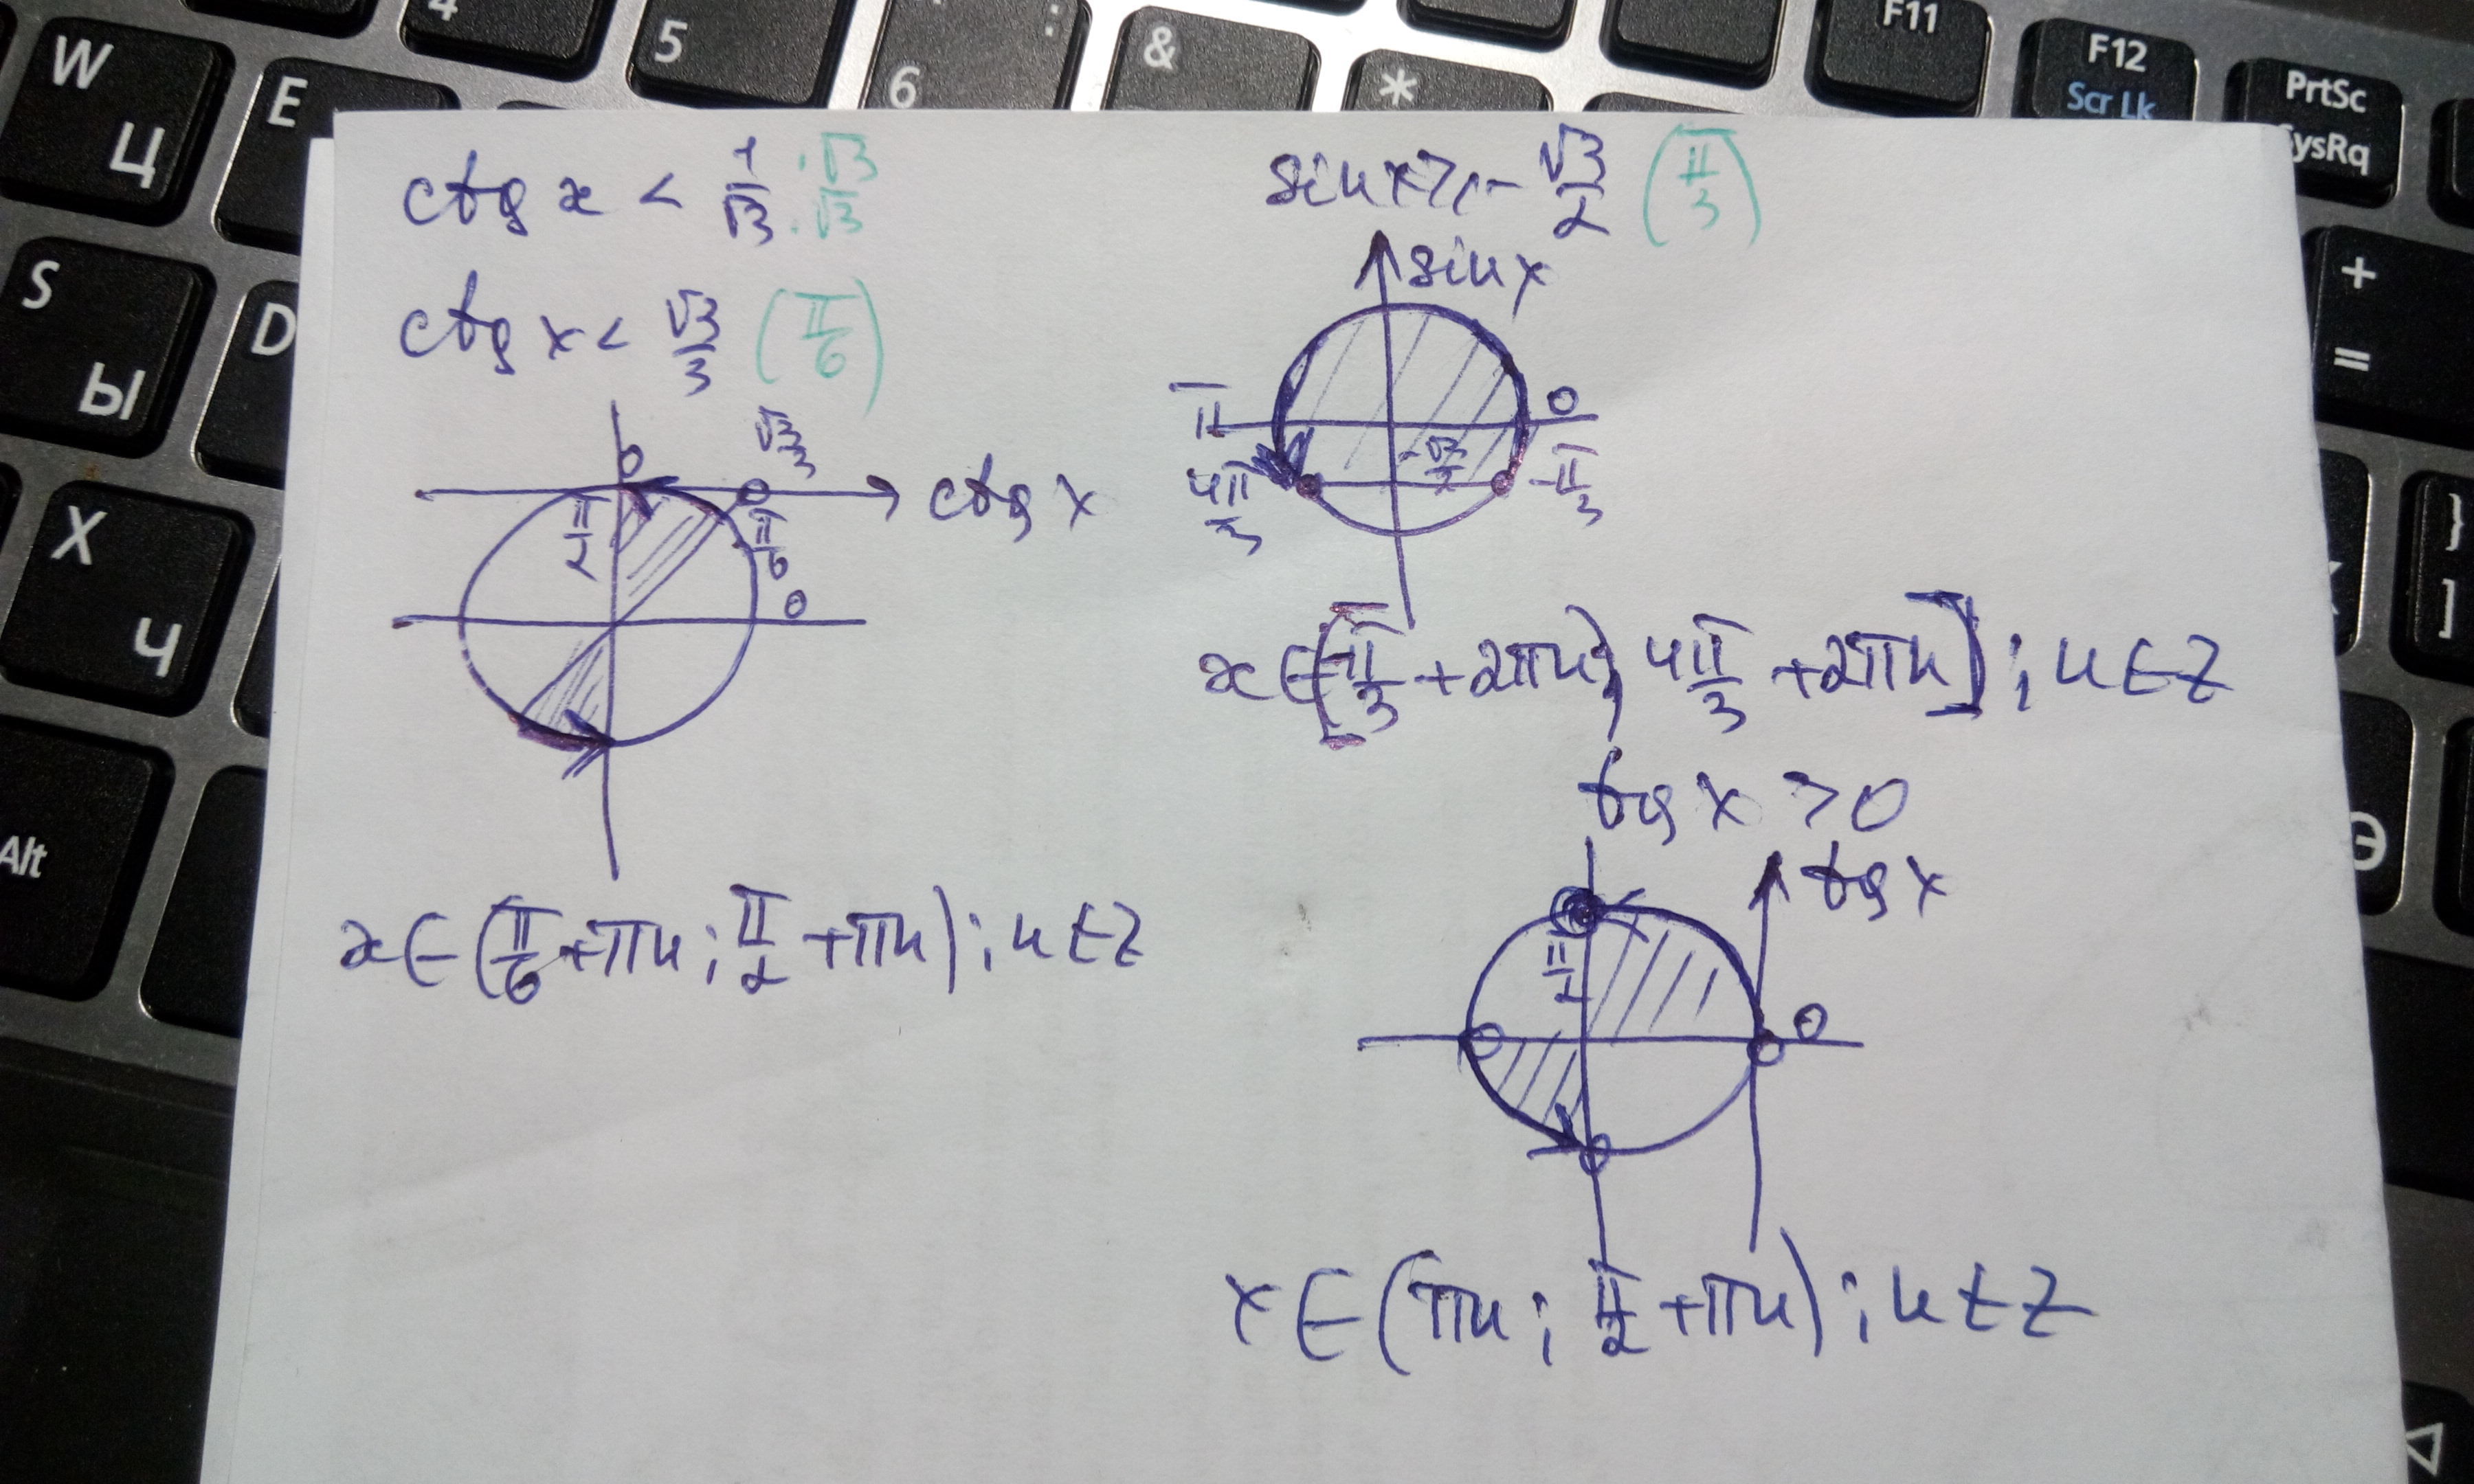 4
5
6
:
&
*
F11
F12
Scr Lk
PrtSc
SysRq
W
Ц
E
S
Ы
D
X
Ч
Alt
+
=
}
]
ctg x < 1/√3 ·√3/·√3
ctg x < √3/3 (π/6)
0
√3/3
ctg x
π/2
π/6
0
x ∈ (π/6 + πn; π/2 + πn); n ∈ Z
sin x ≥ - √3/2 (π/3)
sin x
π
0
4π/3
-√3/2
-π/3
x ∈ [-π/3 + 2πn; 4π/3 + 2πn]; n ∈ Z
tg x > 0
tg x
π/2
0
x ∈ (πn; π/2 + πn); n ∈ Z